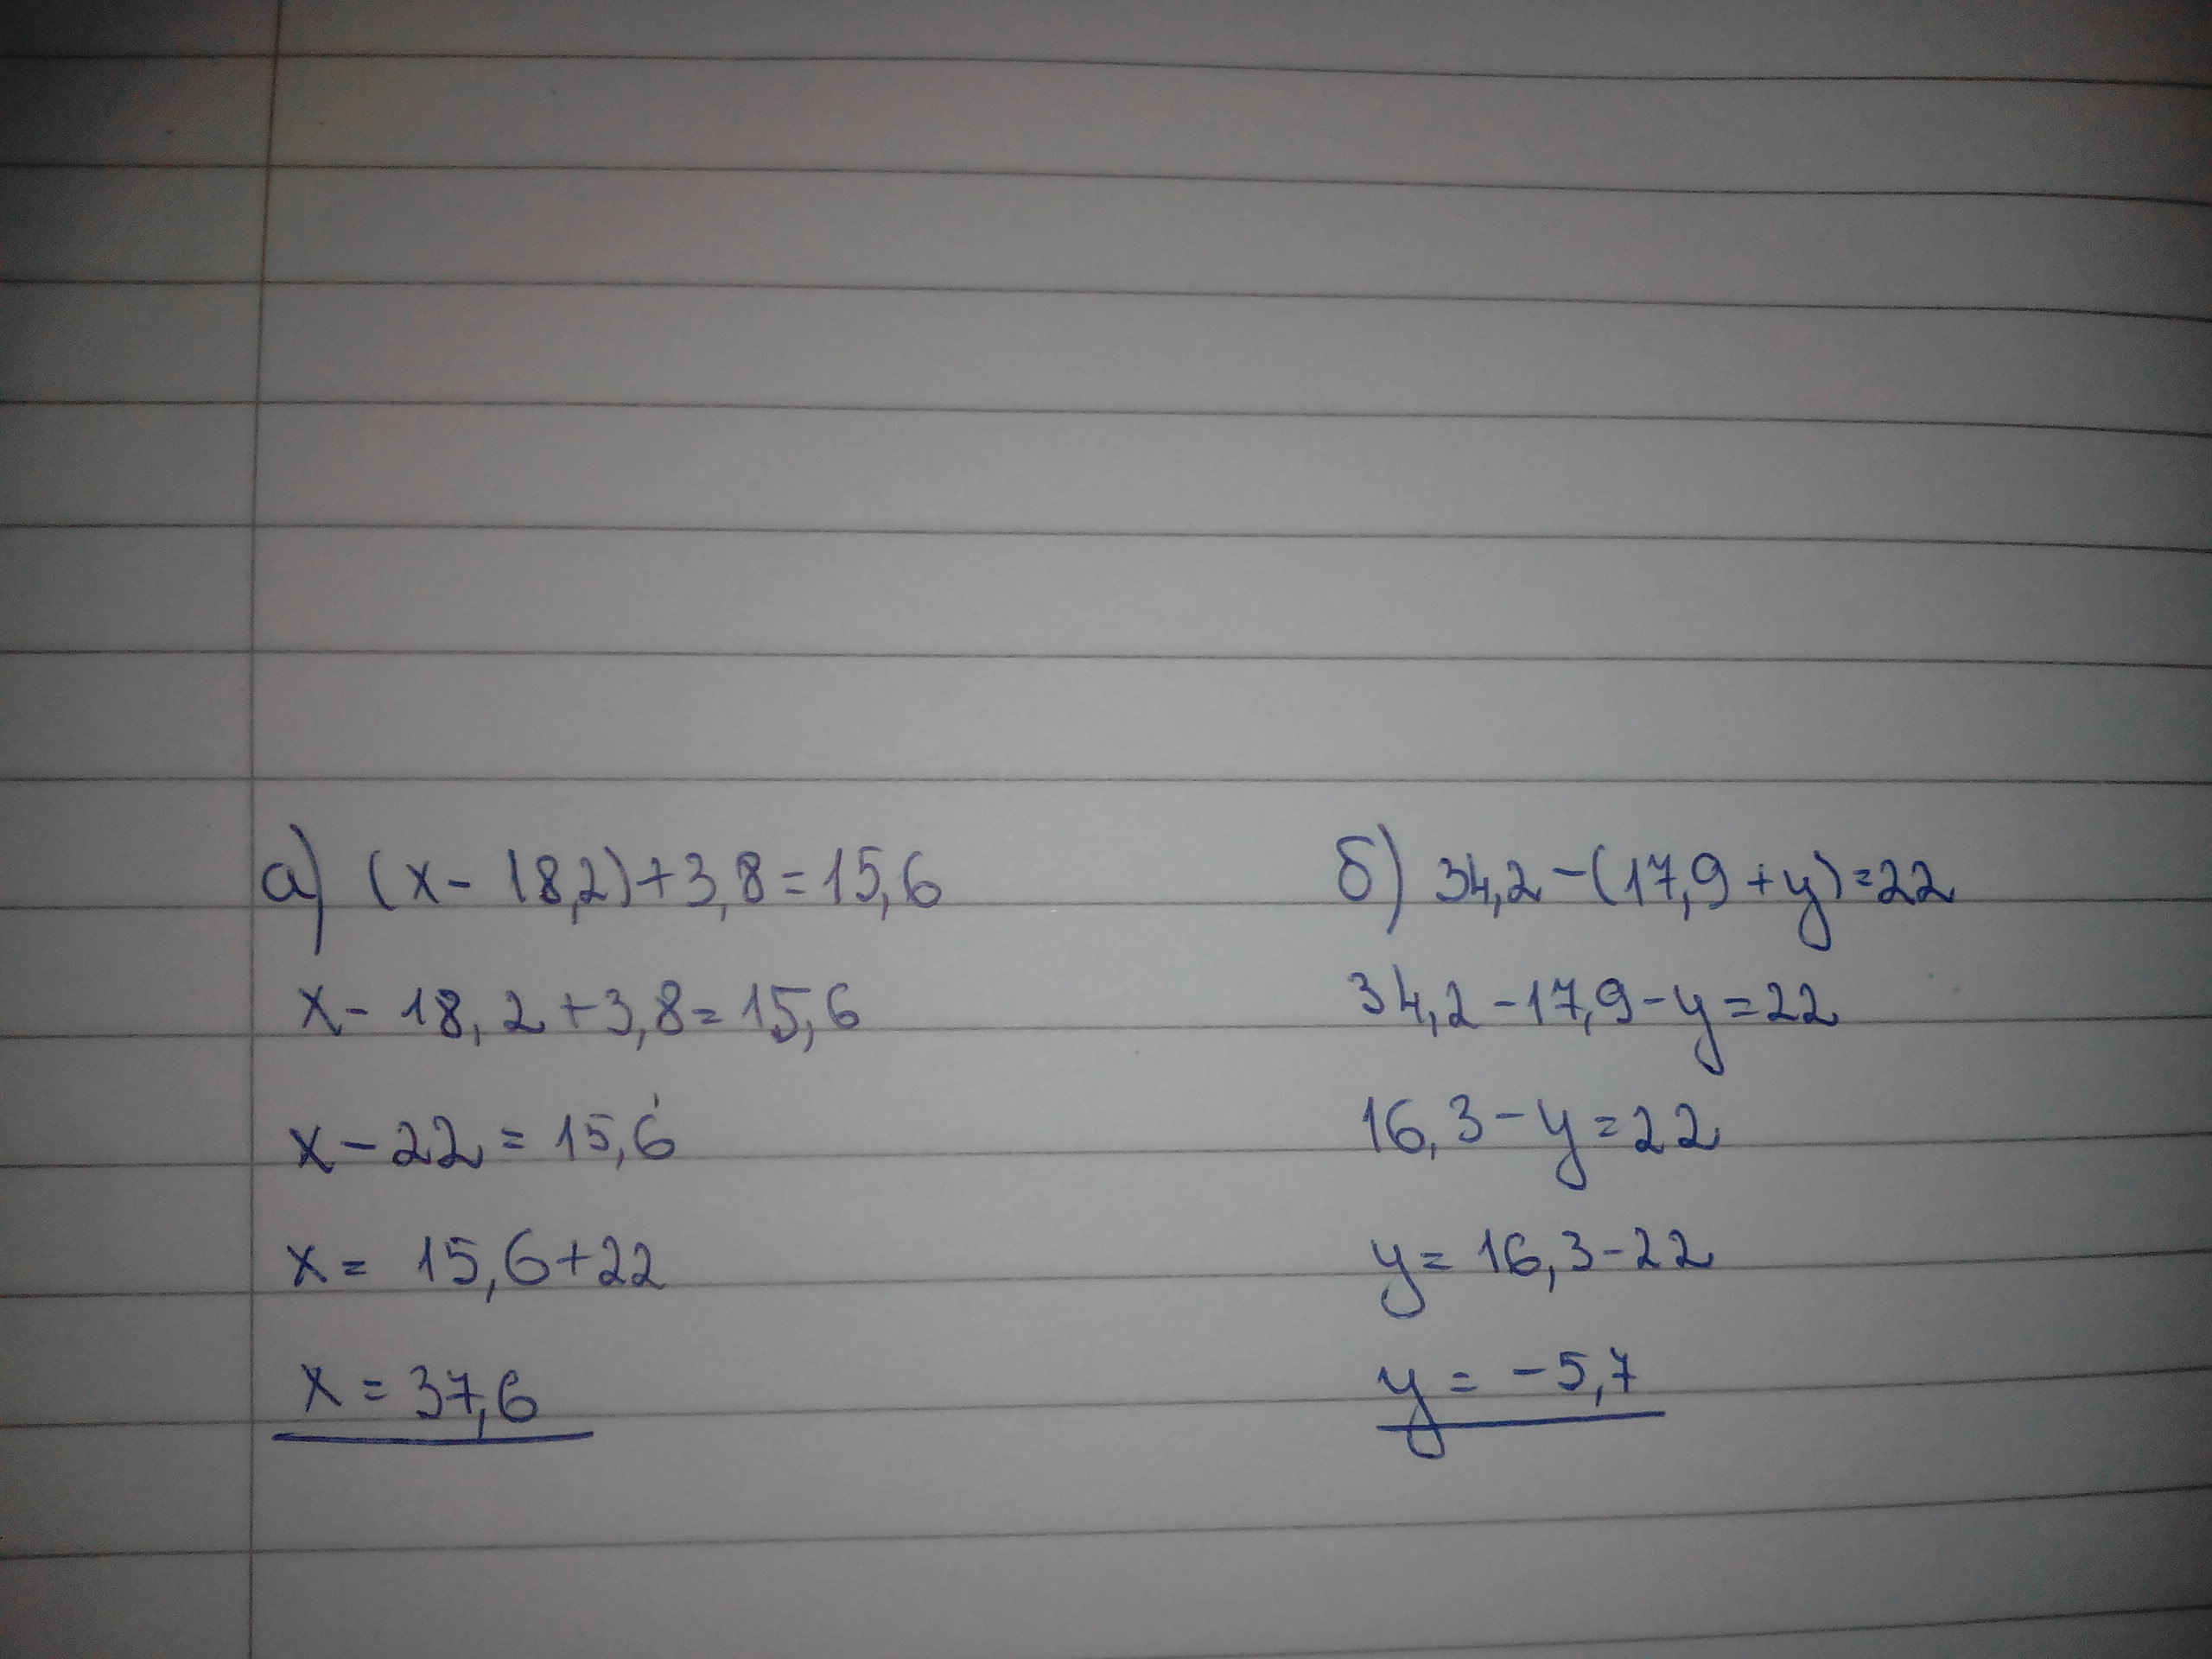 а) (x - 18,2) + 3,8 = 15,6
x - 18,2 + 3,8 = 15,6
x - 22 = 15,6
x = 15,6 + 22
x = 37,6
б) 34,2 - (17,9 + y) = 22
34,2 - 17,9 - y = 22
16,3 - y = 22
y = 16,3 - 22
y = -5,7